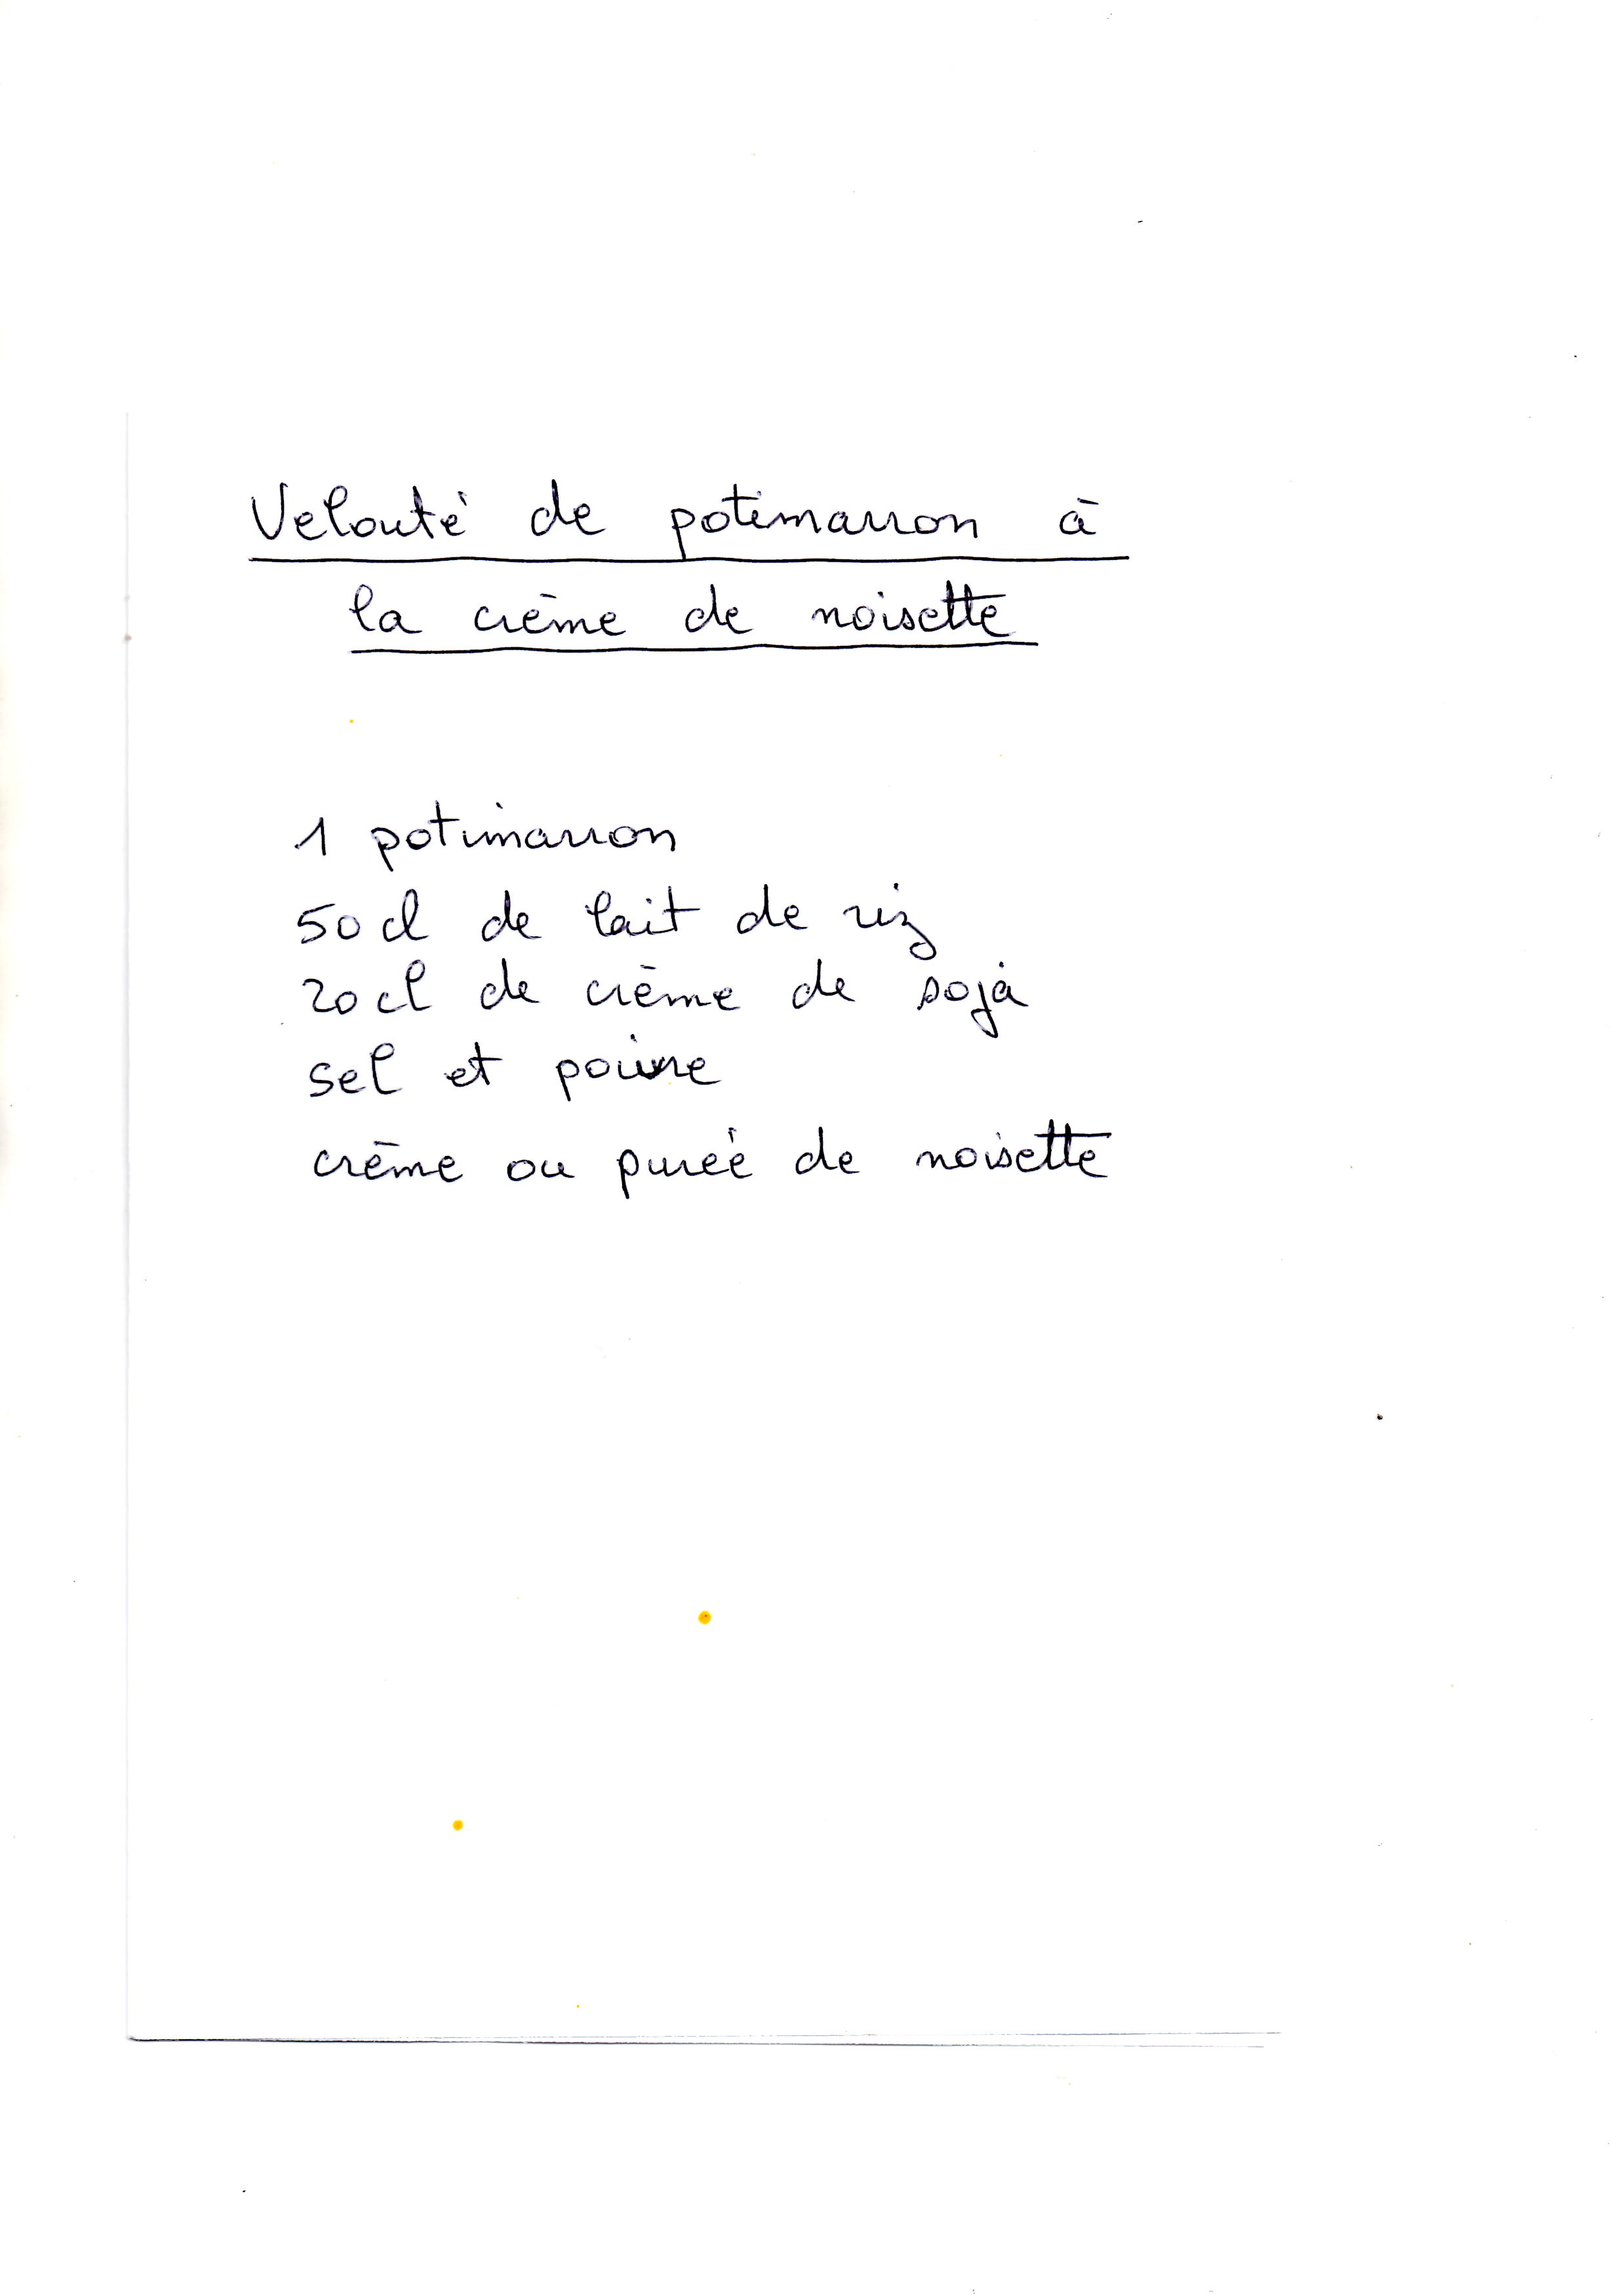 Velouté de potimarron à
la crème de noisette
1 potimarron
50 cl de lait de riz
20 cl de crème de soja
sel et poivre
crème ou purée de noisette